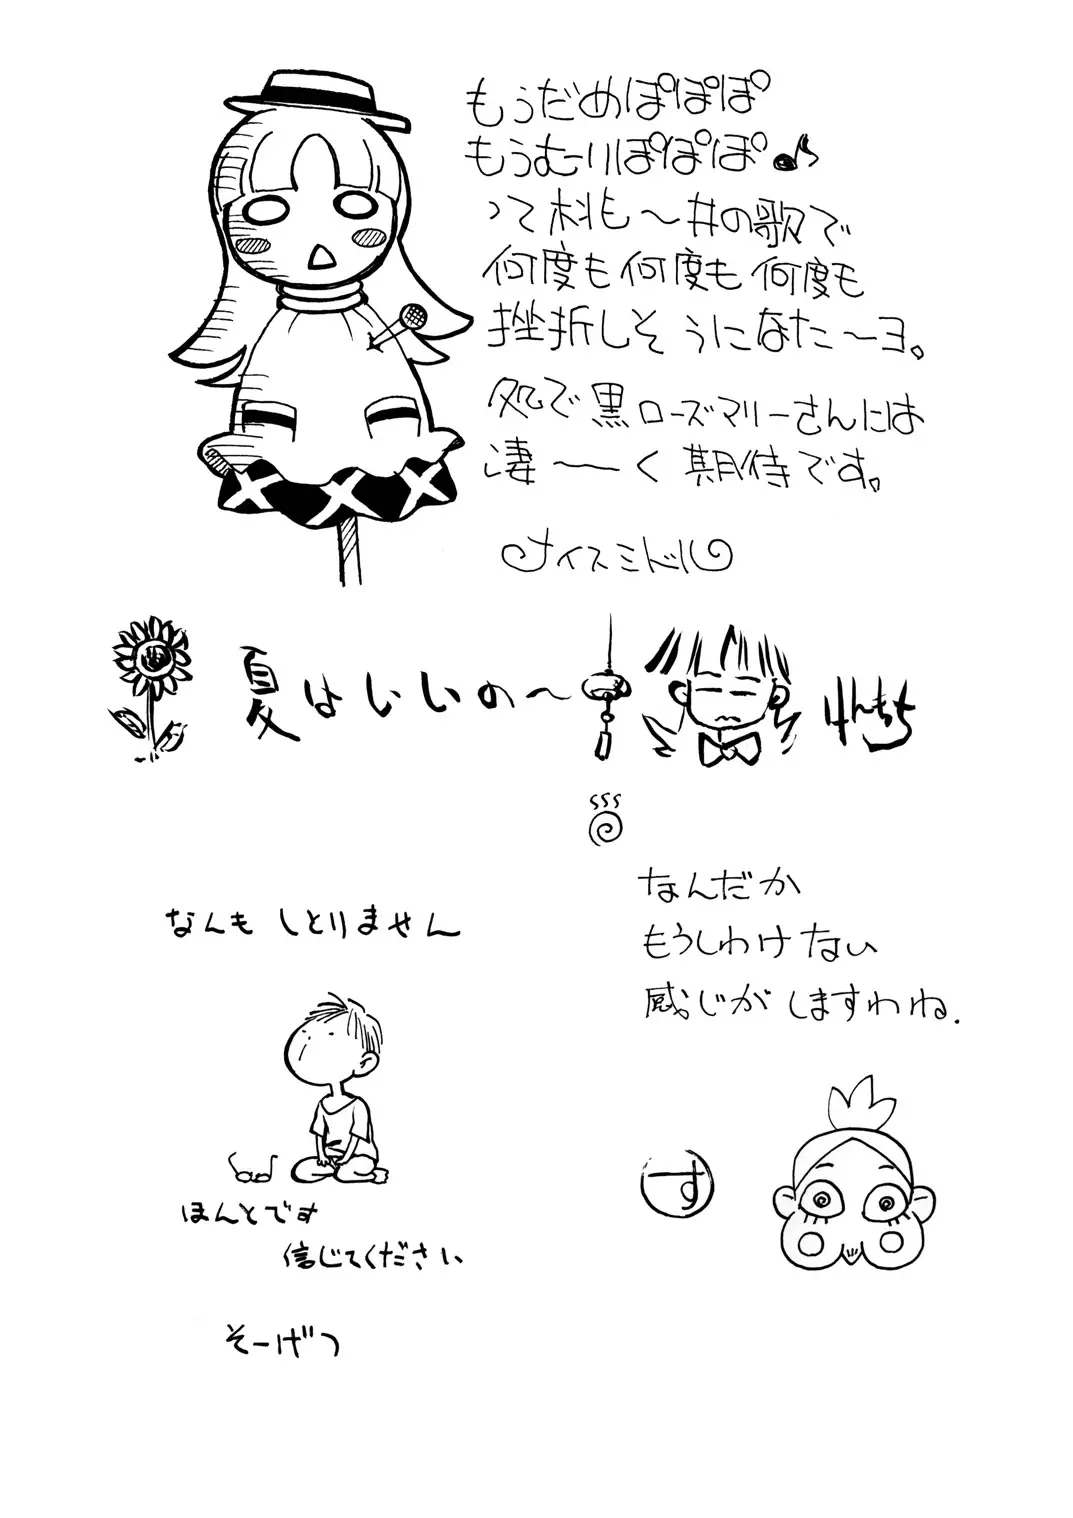 もうだめぽぽぽ
もうむーりぽぽぽ♪
って朴も〜井の歌で
何度も何度も何度も
挫折しそうになた〜ヨ。
処で黒ローズマリーさんには
凄〜〜く期待です。
ナイスミドル
夏はいいの〜
けんもち
なんだか
もうしわけない
感じがしますわね.
す
なんも しとりません
ほんとです
信じてください
そーげつ